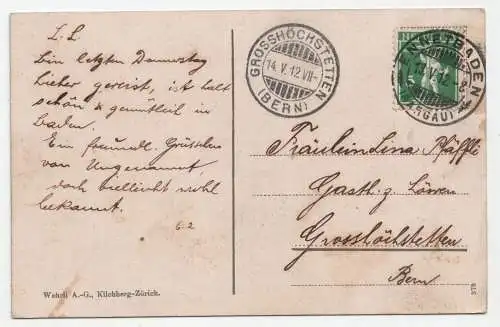 L. L.
Bin letzten Donnerstag
hieher gereist, ist halt
schön & gemütlich in
Baden.
Ein freundl. Grüsschen
von Ungenannt,
doch vielleicht wohl
bekannt.
6.2
Wehrli A.-G., Kilchberg-Zürich.
GROSSHÖCHSTETTEN
14. V. 12 VII-
(BERN)
ENNETBADEN
(AARGAU)
Fräulein Lina Pfäffli
Gasth. z. Löwen
Grosshöchstetten
Bern